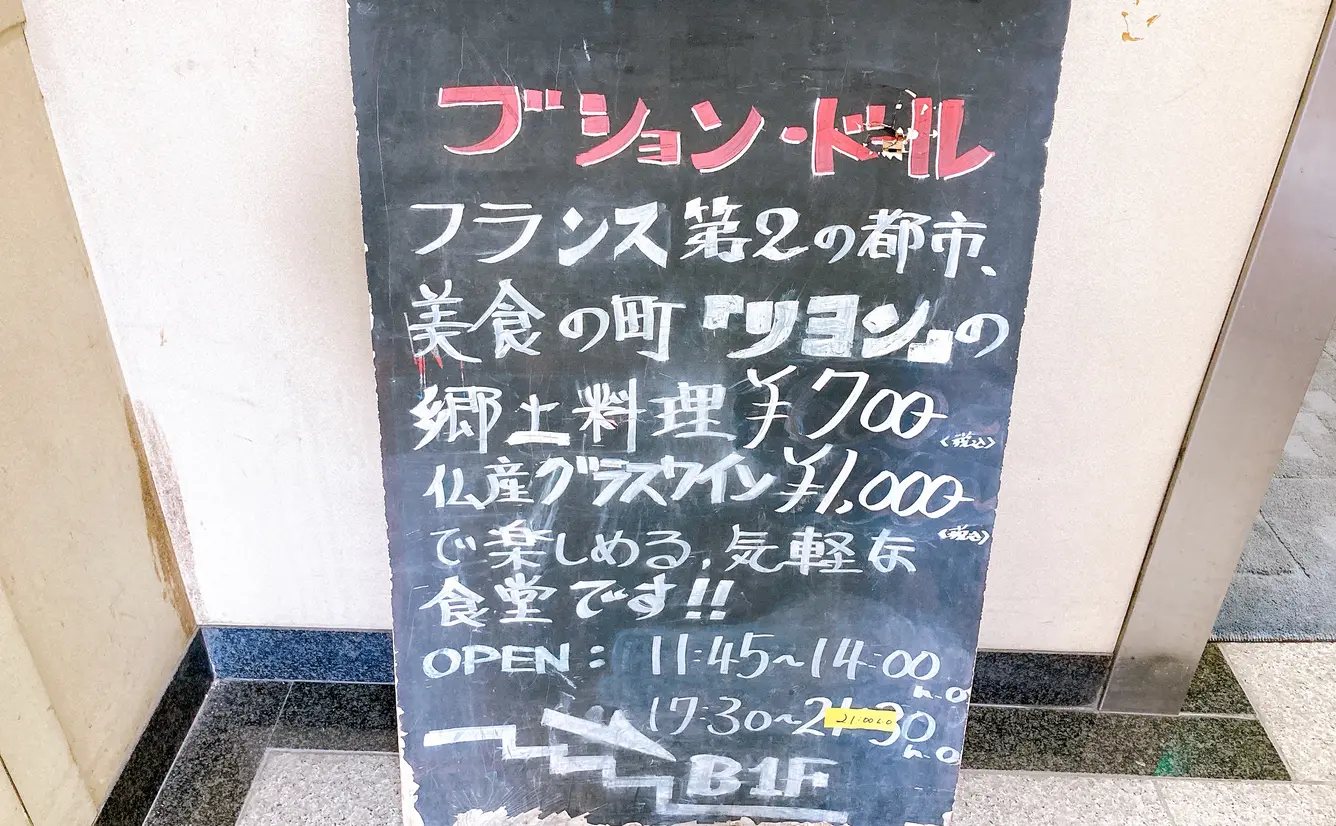 ブション・ドール
フランス第2の都市、
美食の町『リヨン』の
郷土料理¥700
(税込)
仏産グラスワイン¥1,000
(税込)
で楽しめる、気軽な
食堂です!!
OPEN: 11:45~14:00
L.O
17:30~21:30
21:00LO
L.O
B1F